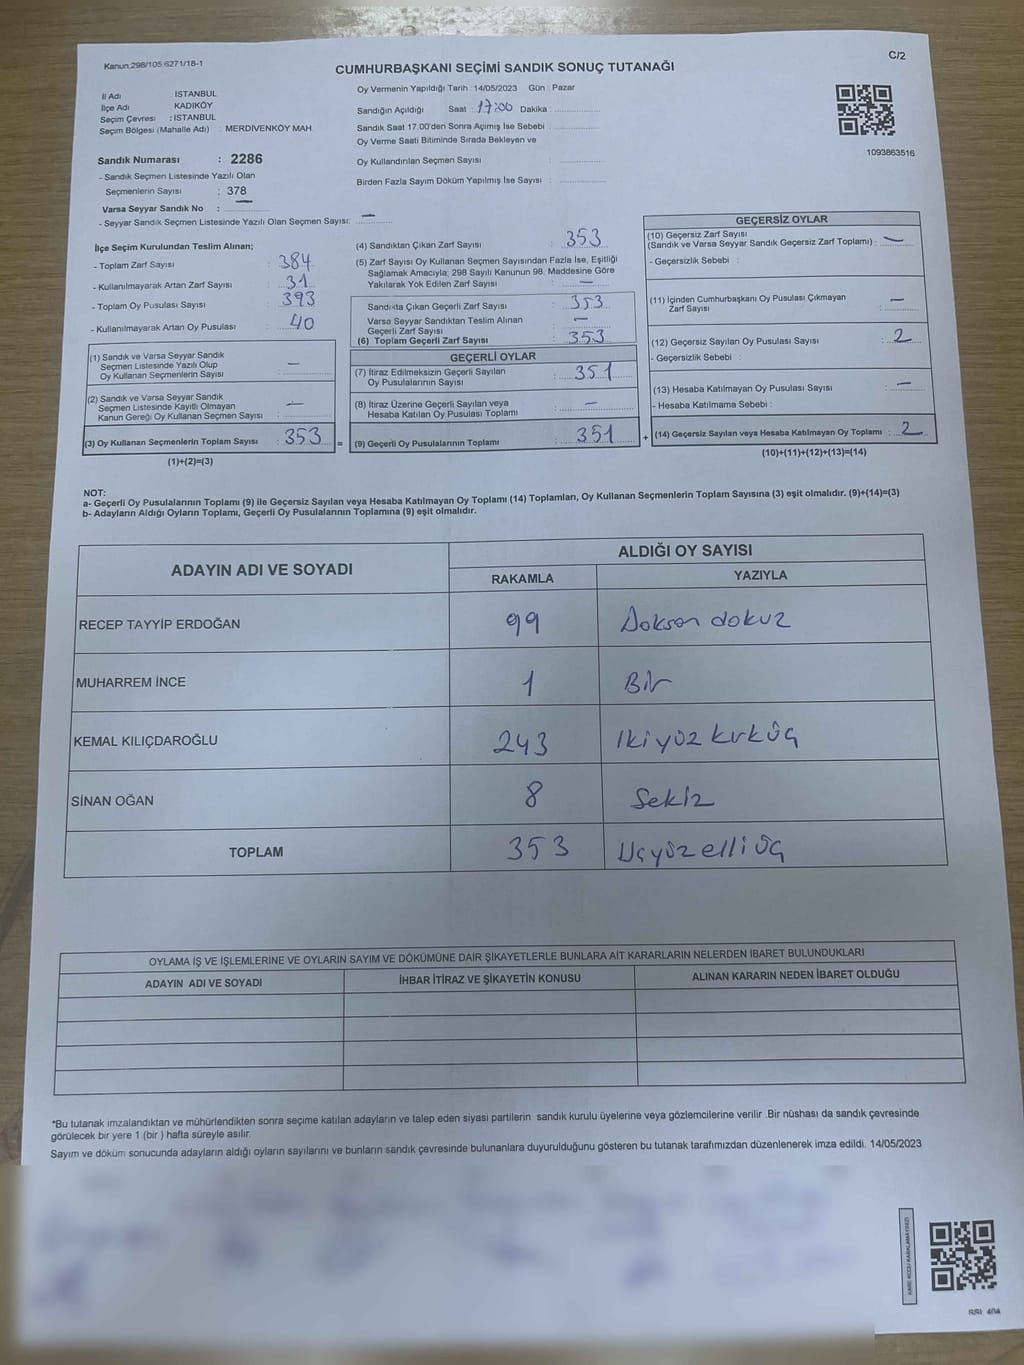 Kanun:298/105:6271/18-1
C/2
CUMHURBAŞKANI SEÇİMİ SANDIK SONUÇ TUTANAĞI
İl Adı İSTANBUL
İlçe Adı KADIKÖY
Seçim Çevresi : İSTANBUL
Seçim Bölgesi (Mahalle Adı) : MERDİVENKÖY MAH
Sandık Numarası : 2286
- Sandık Seçmen Listesinde Yazılı Olan
Seçmenlerin Sayısı : 378
Varsa Seyyar Sandık No : —
- Seyyar Sandık Seçmen Listesinde Yazılı Olan Seçmen Sayısı: —
Oy Vermenin Yapıldığı Tarih : 14/05/2023 Gün : Pazar
Sandığın Açıldığı Saat : 17:00 Dakika :
Sandık Saat 17:00'den Sonra Açımış İse Sebebi :
Oy Verme Saati Bitiminde Sırada Bekleyen ve
Oy Kullandırılan Seçmen Sayısı :
Birden Fazla Sayım Döküm Yapılmış İse Sayısı :
1093863516
İlçe Seçim Kurulundan Teslim Alınan;
- Toplam Zarf Sayısı : 384
- Kullanılmayarak Artan Zarf Sayısı : 31
- Toplam Oy Pusulası Sayısı : 393
- Kullanılmayarak Artan Oy Pusulası : 40
(1) Sandık ve Varsa Seyyar Sandık
Seçmen Listesinde Yazılı Olup
Oy Kullanan Seçmenlerin Sayısı : —
(2) Sandık ve Varsa Seyyar Sandık
Seçmen Listesinde Kayıtlı Olmayan
Kanun Gereği Oy Kullanan Seçmen Sayısı : —
(3) Oy Kullanan Seçmenlerin Toplam Sayısı : 353 =
(1)+(2)=(3)
(4) Sandıktan Çıkan Zarf Sayısı : 353
(5) Zarf Sayısı Oy Kullanan Seçmen Sayısından Fazla İse, Eşitliği
Sağlamak Amacıyla; 298 Sayılı Kanunun 98. Maddesine Göre
Yakılarak Yok Edilen Zarf Sayısı : —
Sandıkta Çıkan Geçerli Zarf Sayısı : 353
Varsa Seyyar Sandıktan Teslim Alınan
Geçerli Zarf Sayısı : —
(6) Toplam Geçerli Zarf Sayısı : 353
GEÇERLİ OYLAR
(7) İtiraz Edilmeksizin Geçerli Sayılan
Oy Pusulalarının Sayısı : 351
(8) İtiraz Üzerine Geçerli Sayılan veya
Hesaba Katılan Oy Pusulası Toplamı : —
(9) Geçerli Oy Pusulalarının Toplamı : 351 +
GEÇERSİZ OYLAR
(10) Geçersiz Zarf Sayısı
(Sandık ve Varsa Seyyar Sandık Geçersiz Zarf Toplamı) : —
- Geçersizlik Sebebi :
(11) İçinden Cumhurbaşkanı Oy Pusulası Çıkmayan
Zarf Sayısı : —
(12) Geçersiz Sayılan Oy Pusulası Sayısı : 2
- Geçersizlik Sebebi :
(13) Hesaba Katılmayan Oy Pusulası Sayısı : —
- Hesaba Katılmama Sebebi :
(14) Geçersiz Sayılan veya Hesaba Katılmayan Oy Toplamı : 2
(10)+(11)+(12)+(13)=(14)
NOT:
a- Geçerli Oy Pusulalarının Toplamı (9) ile Geçersiz Sayılan veya Hesaba Katılmayan Oy Toplamı (14) Toplamları, Oy Kullanan Seçmenlerin Toplam Sayısına (3) eşit olmalıdır. (9)+(14)=(3)
b- Adayların Aldığı Oyların Toplamı, Geçerli Oy Pusulalarının Toplamına (9) eşit olmalıdır.
ADAYIN ADI VE SOYADI ALDIĞI OY SAYISI
RAKAMLA YAZIYLA
RECEP TAYYİP ERDOĞAN 99 Doksan dokuz
MUHARREM İNCE 1 Bir
KEMAL KILIÇDAROĞLU 243 İkiyüz kırküç
SİNAN OĞAN 8 Sekiz
TOPLAM 353 Üçyüzelliüç
OYLAMA İŞ VE İŞLEMLERİNE VE OYLARIN SAYIM VE DÖKÜMÜNE DAİR ŞİKAYETLERLE BUNLARA AİT KARARLARIN NELERDEN İBARET BULUNDUKLARI
ADAYIN ADI VE SOYADI İHBAR İTİRAZ VE ŞİKAYETİN KONUSU ALINAN KARARIN NEDEN İBARET OLDUĞU
*Bu tutanak imzalandıktan ve mühürlendikten sonra seçime katılan adayların ve talep eden siyasi partilerin sandık kurulu üyelerine veya gözlemcilerine verilir .Bir nüshası da sandık çevresinde
görülecek bir yere 1 (bir ) hafta süreyle asılır.
Sayım ve döküm sonucunda adayların aldığı oyların sayılarını ve bunların sandık çevresinde bulunanlara duyurulduğunu gösteren bu tutanak tarafımızdan düzenlenerek imza edildi. 14/05/2023
KARE KODU KARALAMAYINIZ!